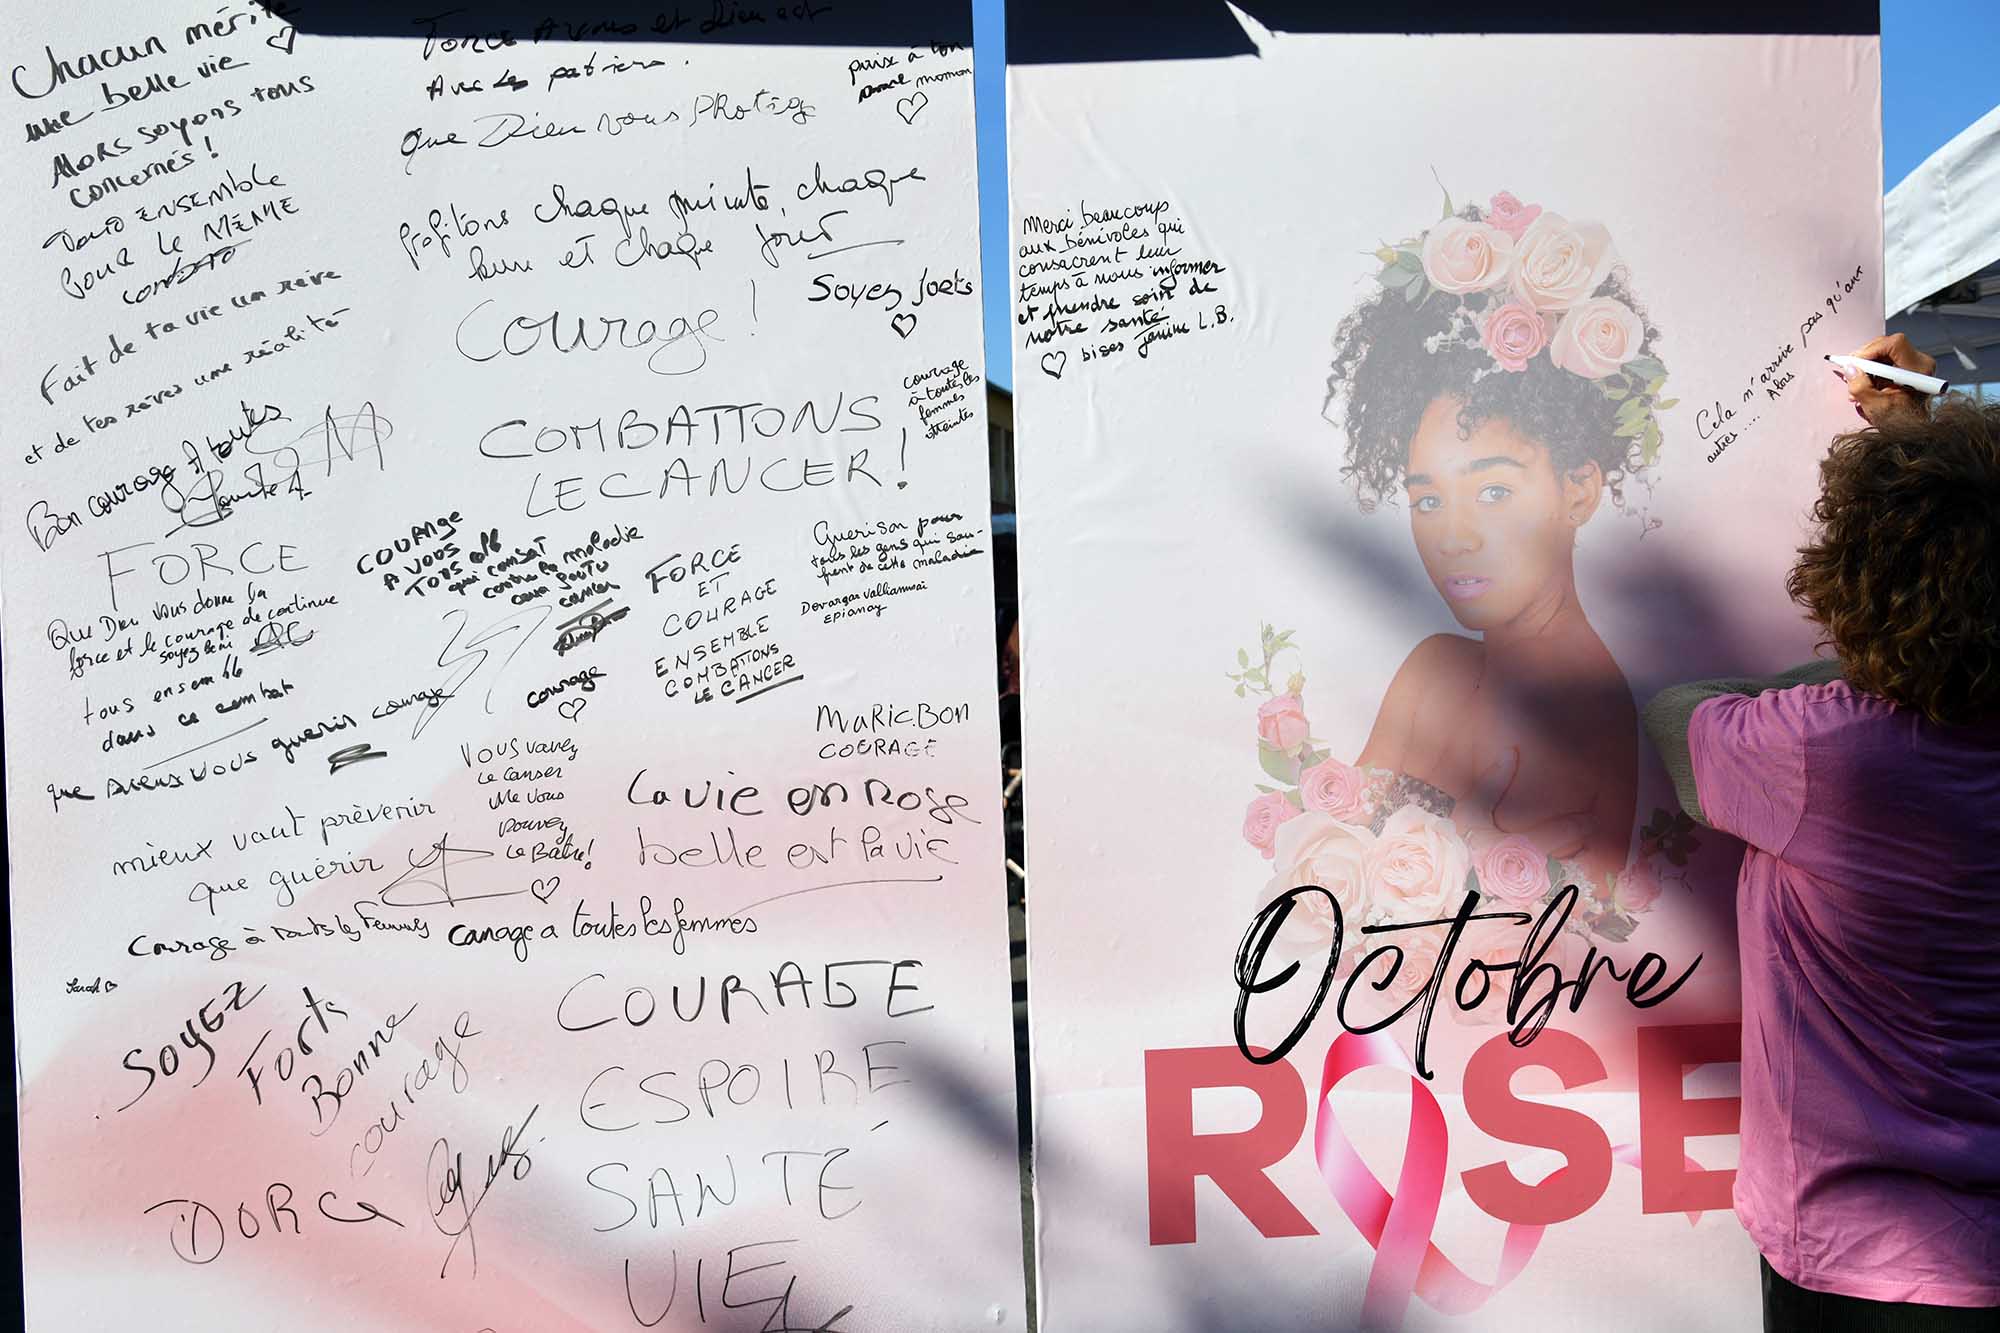 Chacun mérite
une belle vie
Alors soyons tous
concernés !
ENSEMBLE
POUR LE MÊME
combat
Fait de ta vie un rêve
et de tes rêves une réalité
Bon courage A toutes
FORCE
Que Dieu vous donne la
force et le courage de continue
soyez béni
tous ensemble
dans ce combat
que vous guerir courage
mieux vaut prévenir
que guérir
Courage à touts les femmes
Sarah
SOYEZ
Forts
Bonne
courage
Avec les
Que Dieu vous Protège
profitons chaque minute, chaque
heure et chaque jour
Courage !
COMBATTONS
LE CANCER !
COURAGE
A VOUS
TOUS
qui combat
contre la maladie
cancer
courage
FORCE
ET
COURAGE
ENSEMBLE
COMBATTONS
LE CANCER
Vous
Le
Me vous
pouvez
Le Battre!
La vie en Rose
belle est la vie
canage a toutes les femmes
COURAGE
ESPOIRE
SANTÉ
VIE
Soyez forts
courage
à toutes les
femmes
atteintes
Guerison pour
tous les gens qui souf-
frent de cette maladie
MARIE.BON
COURAGE
Merci beaucoup
aux bénévoles qui
consacrent leur
temps à nous informer
et prendre soin de
notre santé
bises Janine L.B.
Cela n'arrive pas qu'aux
autres.... Alors
Octobre
ROSE